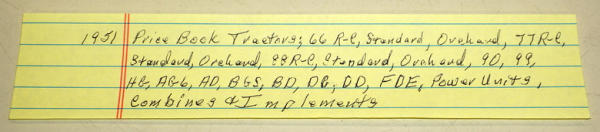 1951 Price Book Tractors; 66 R-C, Standard, Orchard, 77 R-C,
Standard, Orchard, 88 R-C, Standard, Orchard, 90, 99,
HG, AG6, AD, BGS, BD, DG, DD, FDE, Power Units,
Combines & Implements